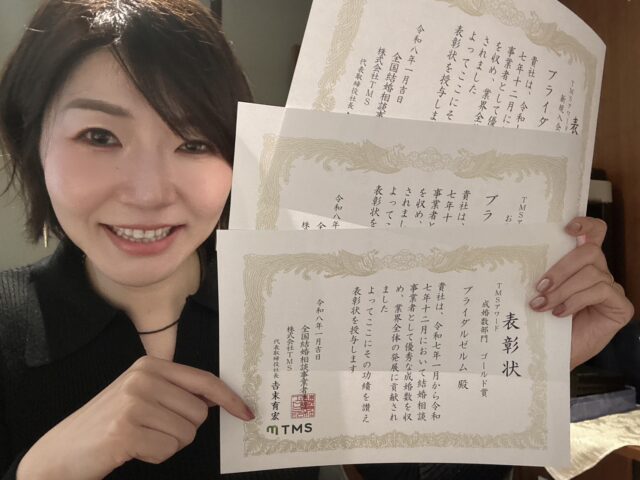 表
TMSアワード
新規入会
ブライダ
貴社は、令和
七年十二月に
事業者として優
を収め、業界
されました
よってここにそ
表彰状を授与しま
令和八年一月吉日
全国結婚相談事
株式会社TMS
代表取締役社長
TMSア
お
ブラ
貴社は、
七年十
事業者と
を収め
されまし
よって
表彰状を
令和八
株
表彰状
TMSアワード
成婚数部門 ゴールド賞
ブライダルゼルム 殿
貴社は、令和七年一月から令和
七年十二月において結婚相談
事業者として優秀な成婚数を収
め、業界全体の発展に貢献され
ました
よってここにその功績を讃え
表彰状を授与します
令和八年一月吉日
全国結婚相談事業者
株式会社TMS
代表取締役社長 吉末育宏
TMS